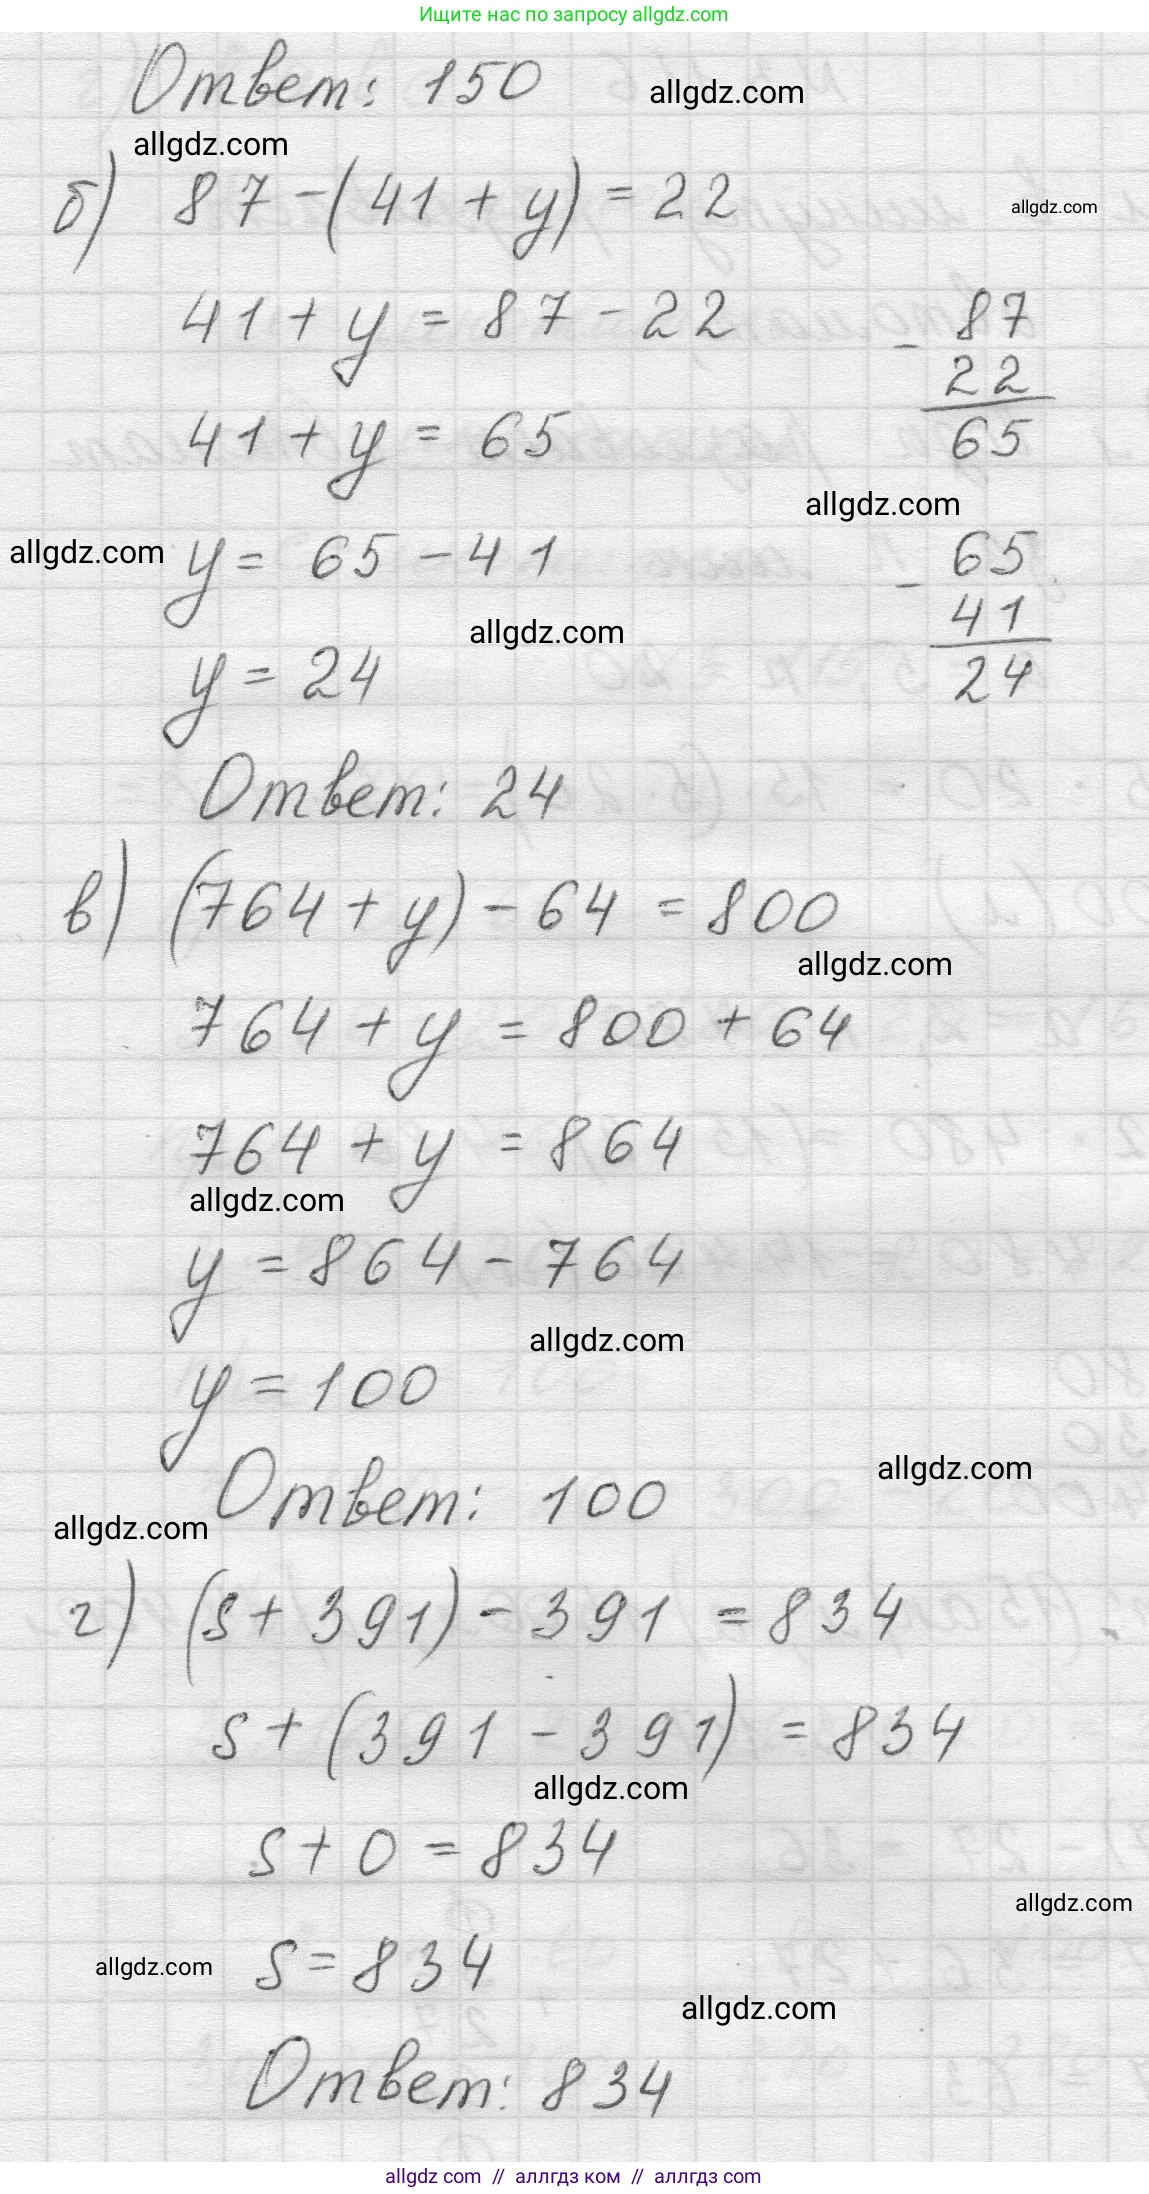 Ищите нас по запросу allgdz.com
Ответ: 150
allgdz.com
allgdz.com
б) 87 - (41 + y) = 22
allgdz.com
41 + y = 87 - 22
- 87
22
65
41 + y = 65
allgdz.com
allgdz.com
y = 65 - 41
- 65
41
24
allgdz.com
y = 24
Ответ: 24
в) (764 + y) - 64 = 800
allgdz.com
764 + y = 800 + 64
764 + y = 864
allgdz.com
y = 864 - 764
allgdz.com
y = 100
Ответ: 100
allgdz.com
allgdz.com
г) (s + 391) - 391 = 834
s + (391 - 391) = 834
allgdz.com
s + 0 = 834
allgdz.com
s = 834
allgdz.com
allgdz.com
Ответ: 834
allgdz com // аллгдз ком // аллгдз com